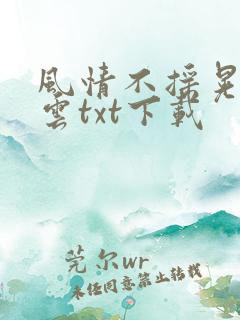 風情不搖晃
雲txt下載
莞尔wr
未经同意禁止转载